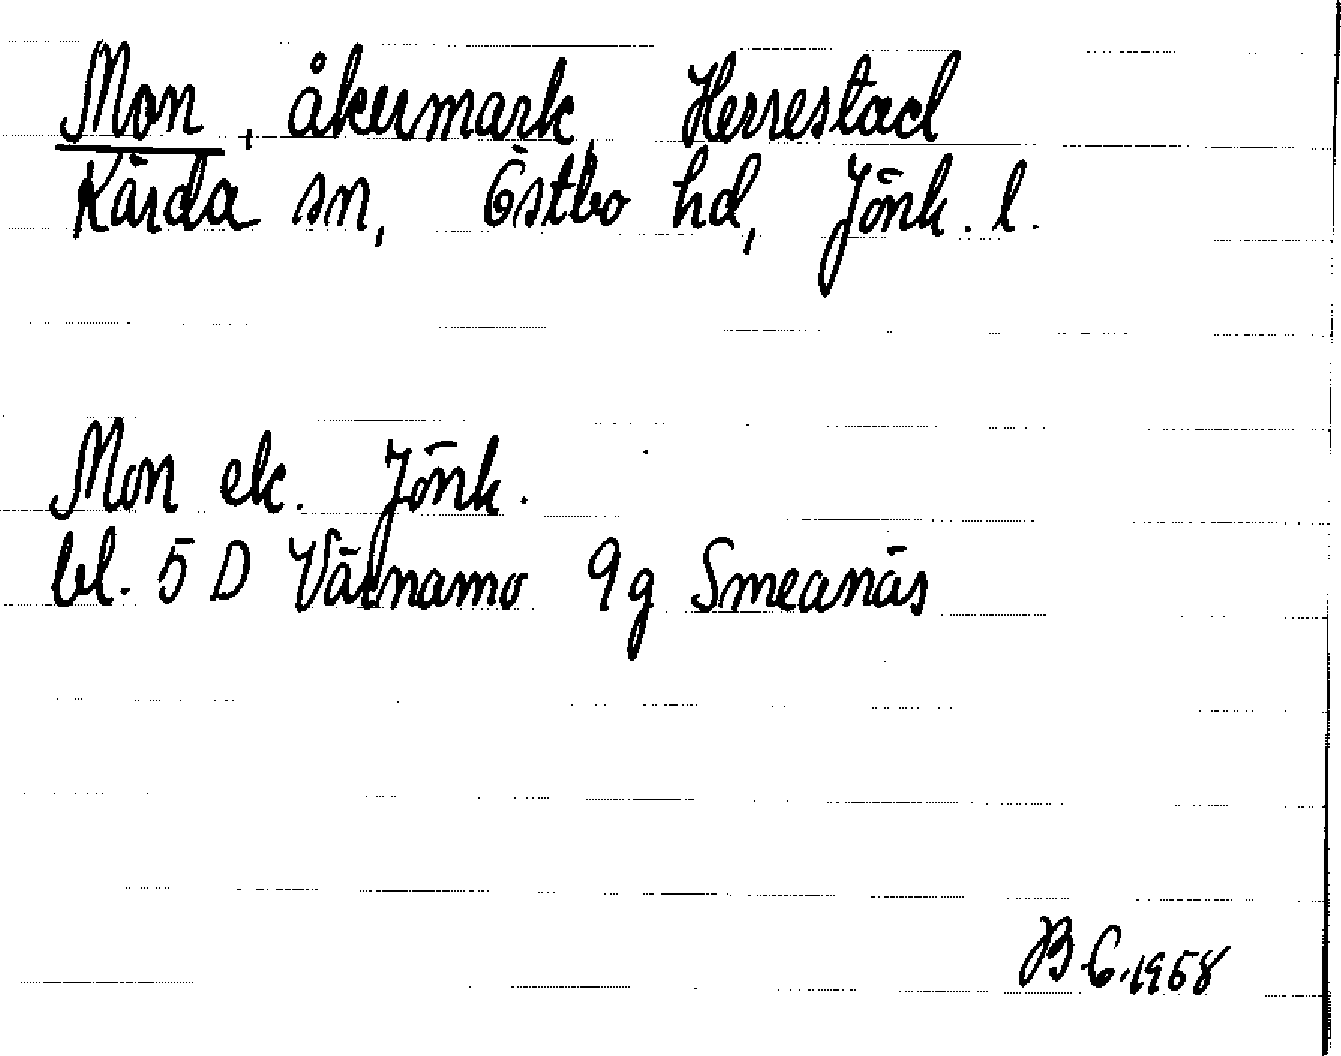 Mon, åkermark, Herrestad
Kärda sn, Östbo hd, Jönk. l.
Mon ek. Jönk.
bl. 5 D Värnamo 9g Smeanäs
B C. 1958